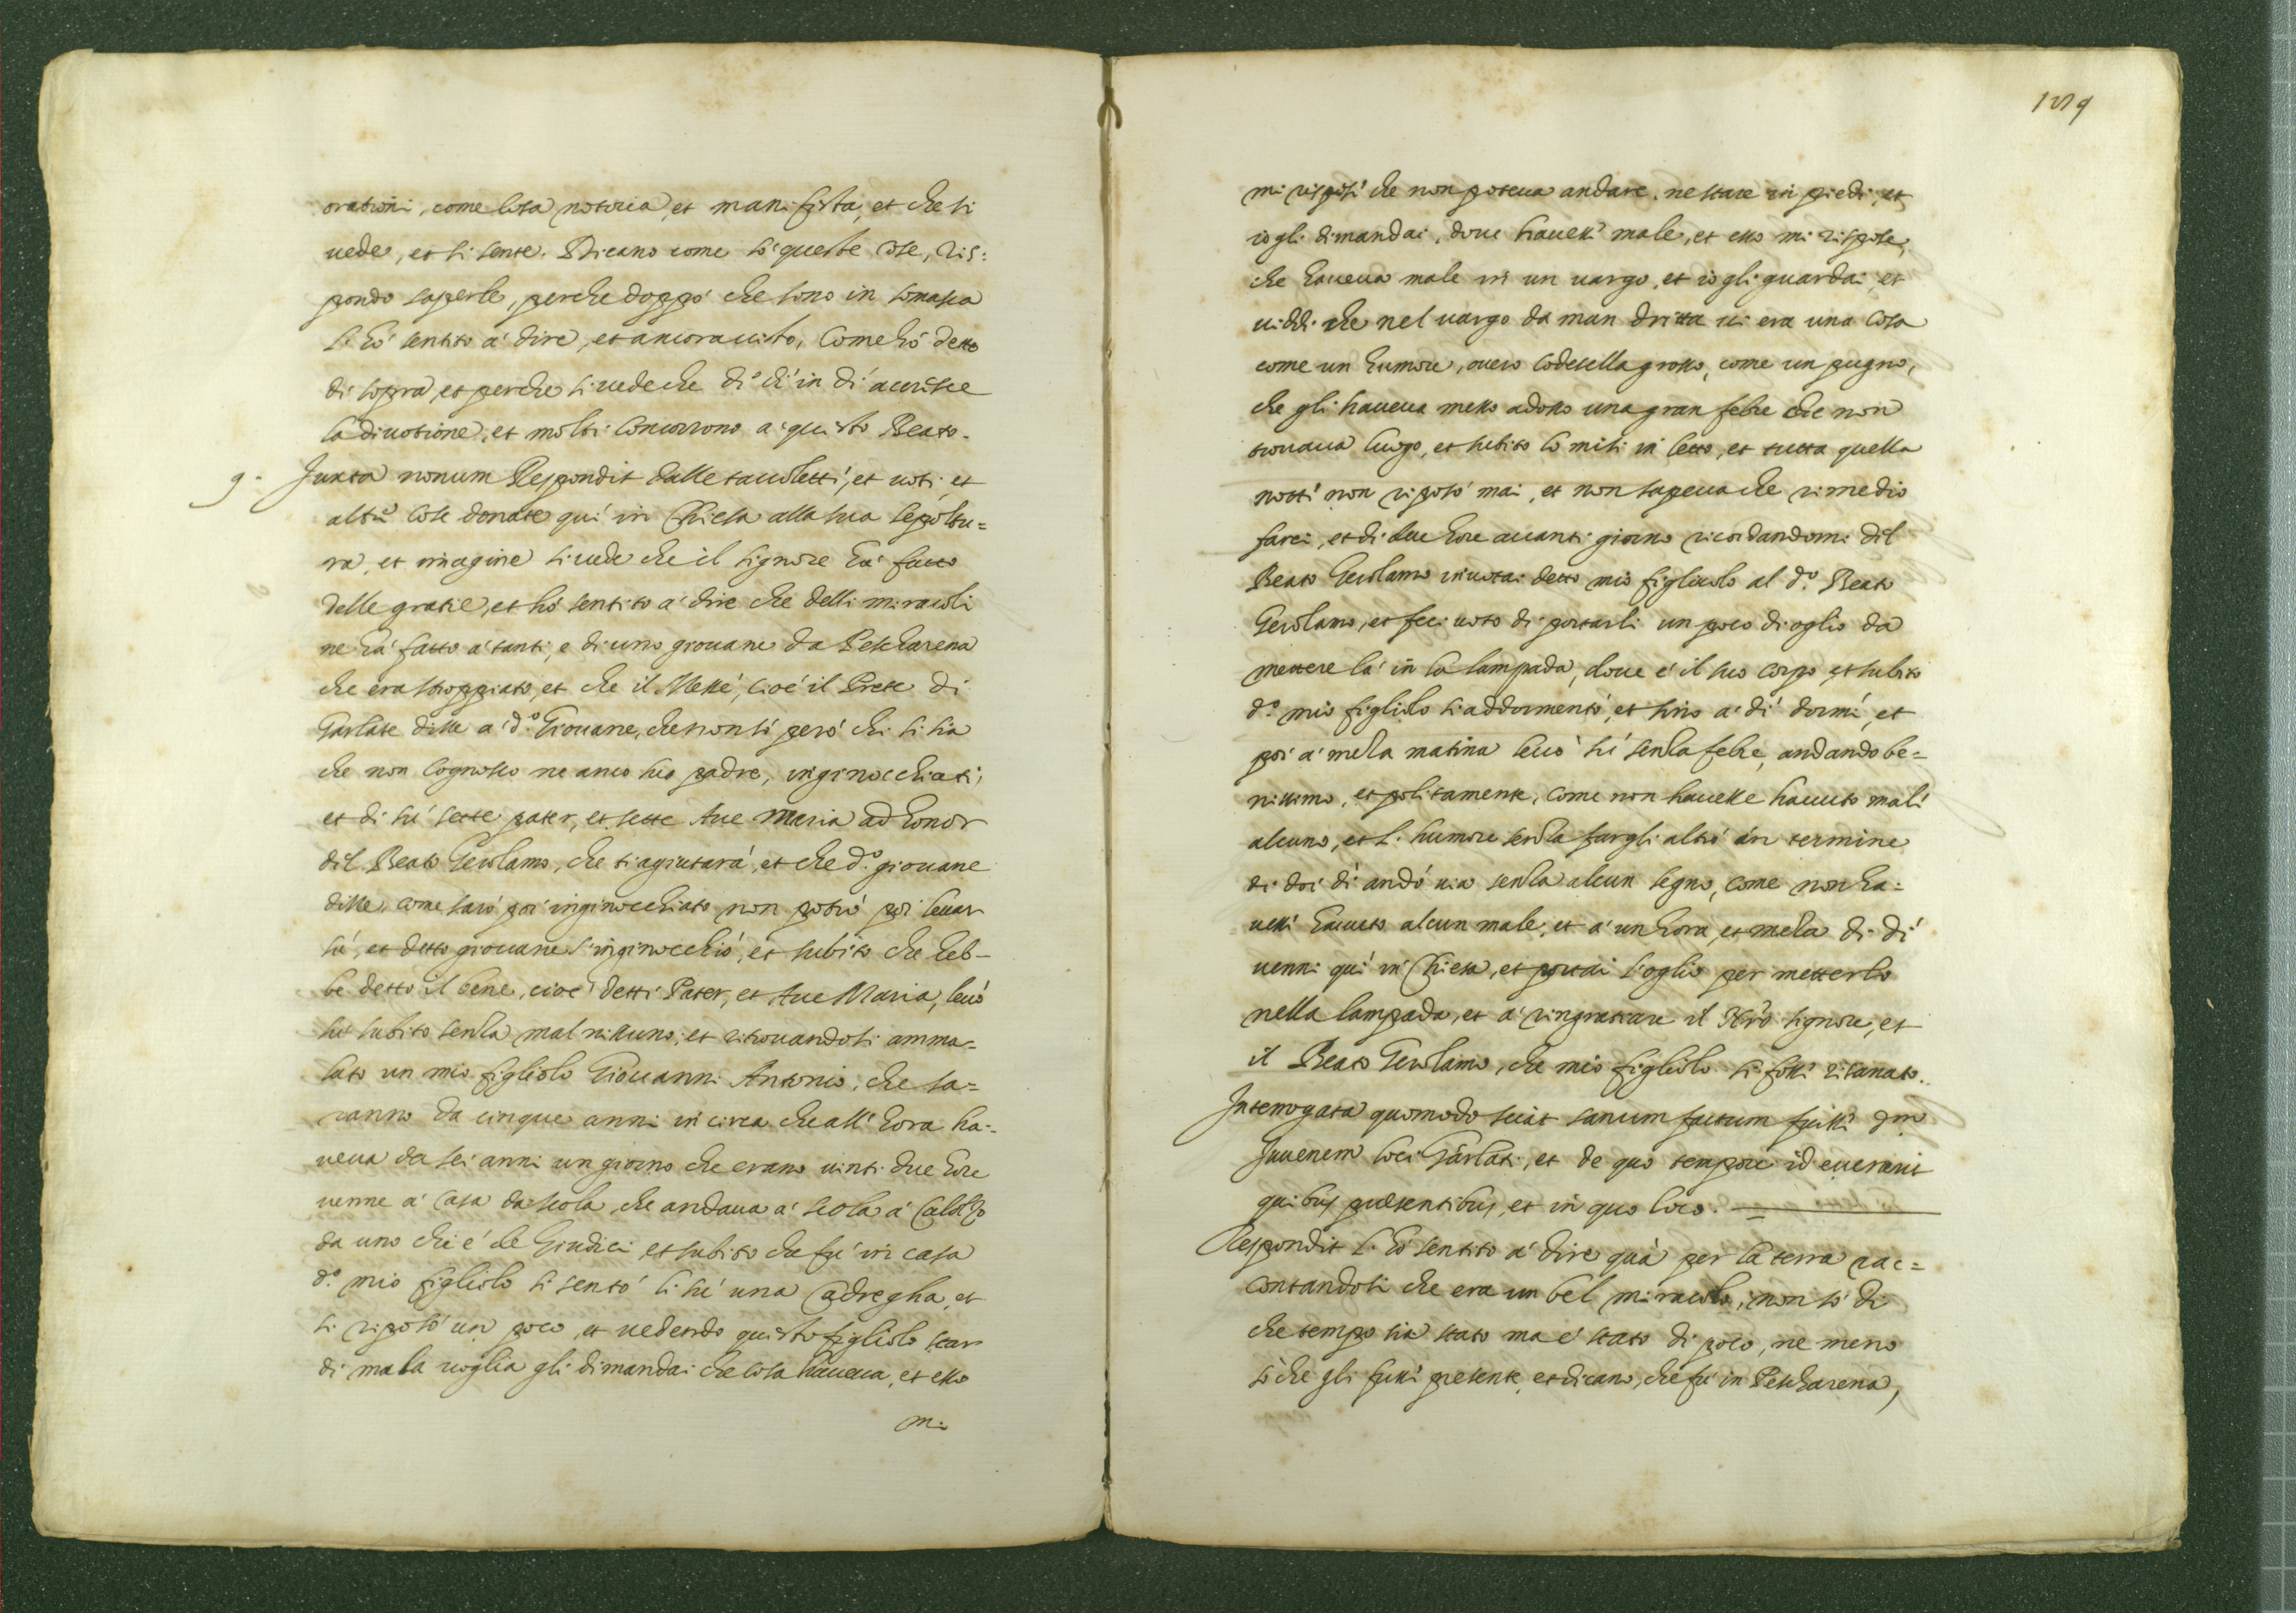 orationi, come cosa notoria, et manifesta, et che si
uede, et si sente. Dicano come sò queste cose, ris:
pondo saperle, perche doppò che sono in Somasca
l'hò sentito à dire, et ancora uisto, come hò detto
di sopra, et perche si uede che di dì in dì accresce
la diuotione, et molti concorrono a questo Beato.
9. Juxta nonum Respondit dalle tauolette, et uoti, et
altre cose donate quì in Chiesa alla sua sepoltu=
ra, et imagine si uede che il signore hà fatto
delle gratie, et hò sentito à dire che delli miracoli
ne hà fatto à tanti, e di uno giouane da Pescharena
che era stroppiato, et che il Messè, cioè il Prete di
Garlate disse a d.º Giouane, che non sò però chi si sia
che non cognosco ne anco suo padre, inginocchiati,
et dì sù sette pater, et sette Aue Maria ad honor
dil Beato Gerolamo, che ti agiutarà, et che d.º giouane
disse, come sarò poi inginocchiato non potrò poi leuar
sù, et detto giouane s'inginocchiò, et subito che heb-
be detto il bene, cioè detti Pater, et Aue Maria, leuò
sù subito senza mal nissuno; et ritrouandosi amma=
lato un mio figliolo Giouanni Antonio, che sa=
ranno da cinque anni in circa che all'hora ha=
ueua da sei anni un giorno che erano uinti due hore
uenne à casa da scola, che andaua à scola à Calolzo
da uno chi è de Giudici et subito che fù in casa
d.º mio figliolo si sentò li sù una Cadregha, et
si ripotò un poco, et uedendo questo figliolo star
di mala uoglia gli dimandai che cosa haueua, et esso
mi
129
mi rispose che non poteua andare, ne stare in piedi, et
io gli dimandai, doue hauesse male, et esso mi rispose,
che haueua male in un uargo, et io gli guardai, et
uiddi che nel uargo da man dritta ui era una cosa
come un humore, ouero codesella grosso, come un pugno,
che gli haueua messo adosso una gran febre che non
trouaua luogo, et subito lo misi in letto, et tutta quella
notte non riposò mai, et non sapeua che rimedio
farci, et di due hore auanti giorno ricordandomi dil
Beato Gerolamo inuotai detto mio figliuolo al d.º Beato
Gerolamo, et feci uoto di portarli un poco di oglio da
mettere là in la lampada, doue è il suo corpo, et subito
d.º mio figliolo si addormentò, et sino a dì dormì, et
poi à meza matina leuò sù senza febre, andando be=
nissimo, et politamente, come non hauesse hauuto male
alcuno, et l'humore senza fargli altro in termine
di doi dì andò uia senza alcun segno, come non ha=
uesse hauuto alcun male, et à un hora, et meza di dì
uenni quì in Chiesa, et portai l'oglio per metterlo
nella lampada, et à ringratiare il Nro signore, et
il Beato Gerolamo, che mio figliolo si fosse risanato.
Interrogata quomodo sciat sanum factum fuisse dm
Juuenem loci Garlati, et de quo tempore id euenerit
quibus praesentibus, et in quo loco.
Respondit l'hò sentito à dire quà per la terra rac=
contandosi che era un bel miracolo, non sò di
che tempo sia stato ma è stato di poco, ne meno
sò che gli fusse presente, et dicano, che fù in Pescharena,